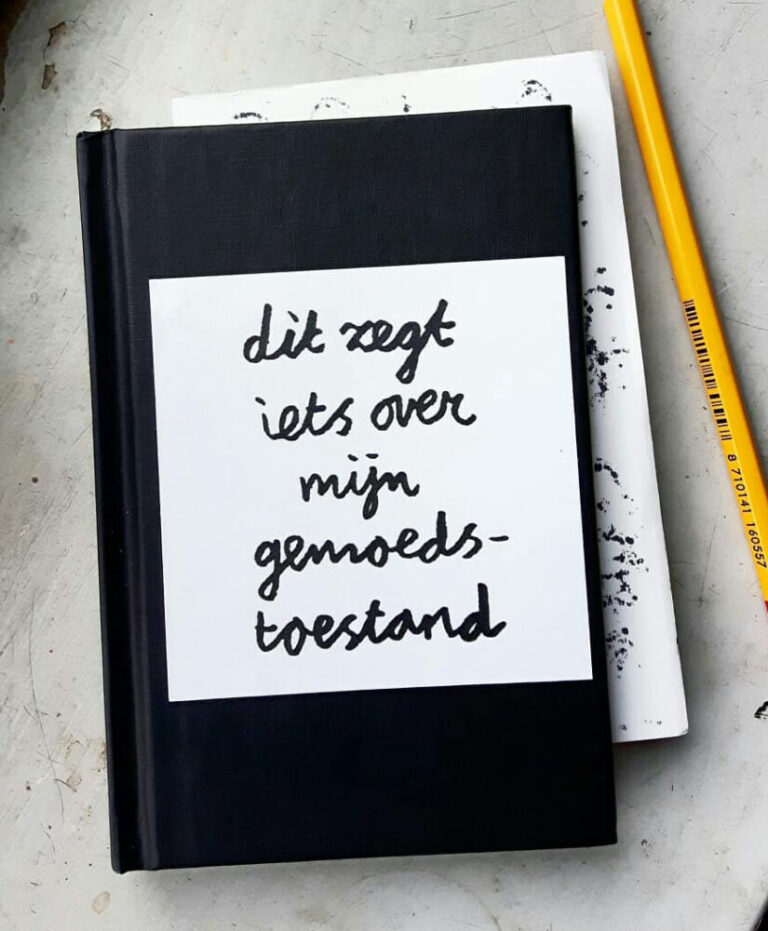 dit zegt
iets over
mijn
gemoeds-
toestand
8 710141 160557